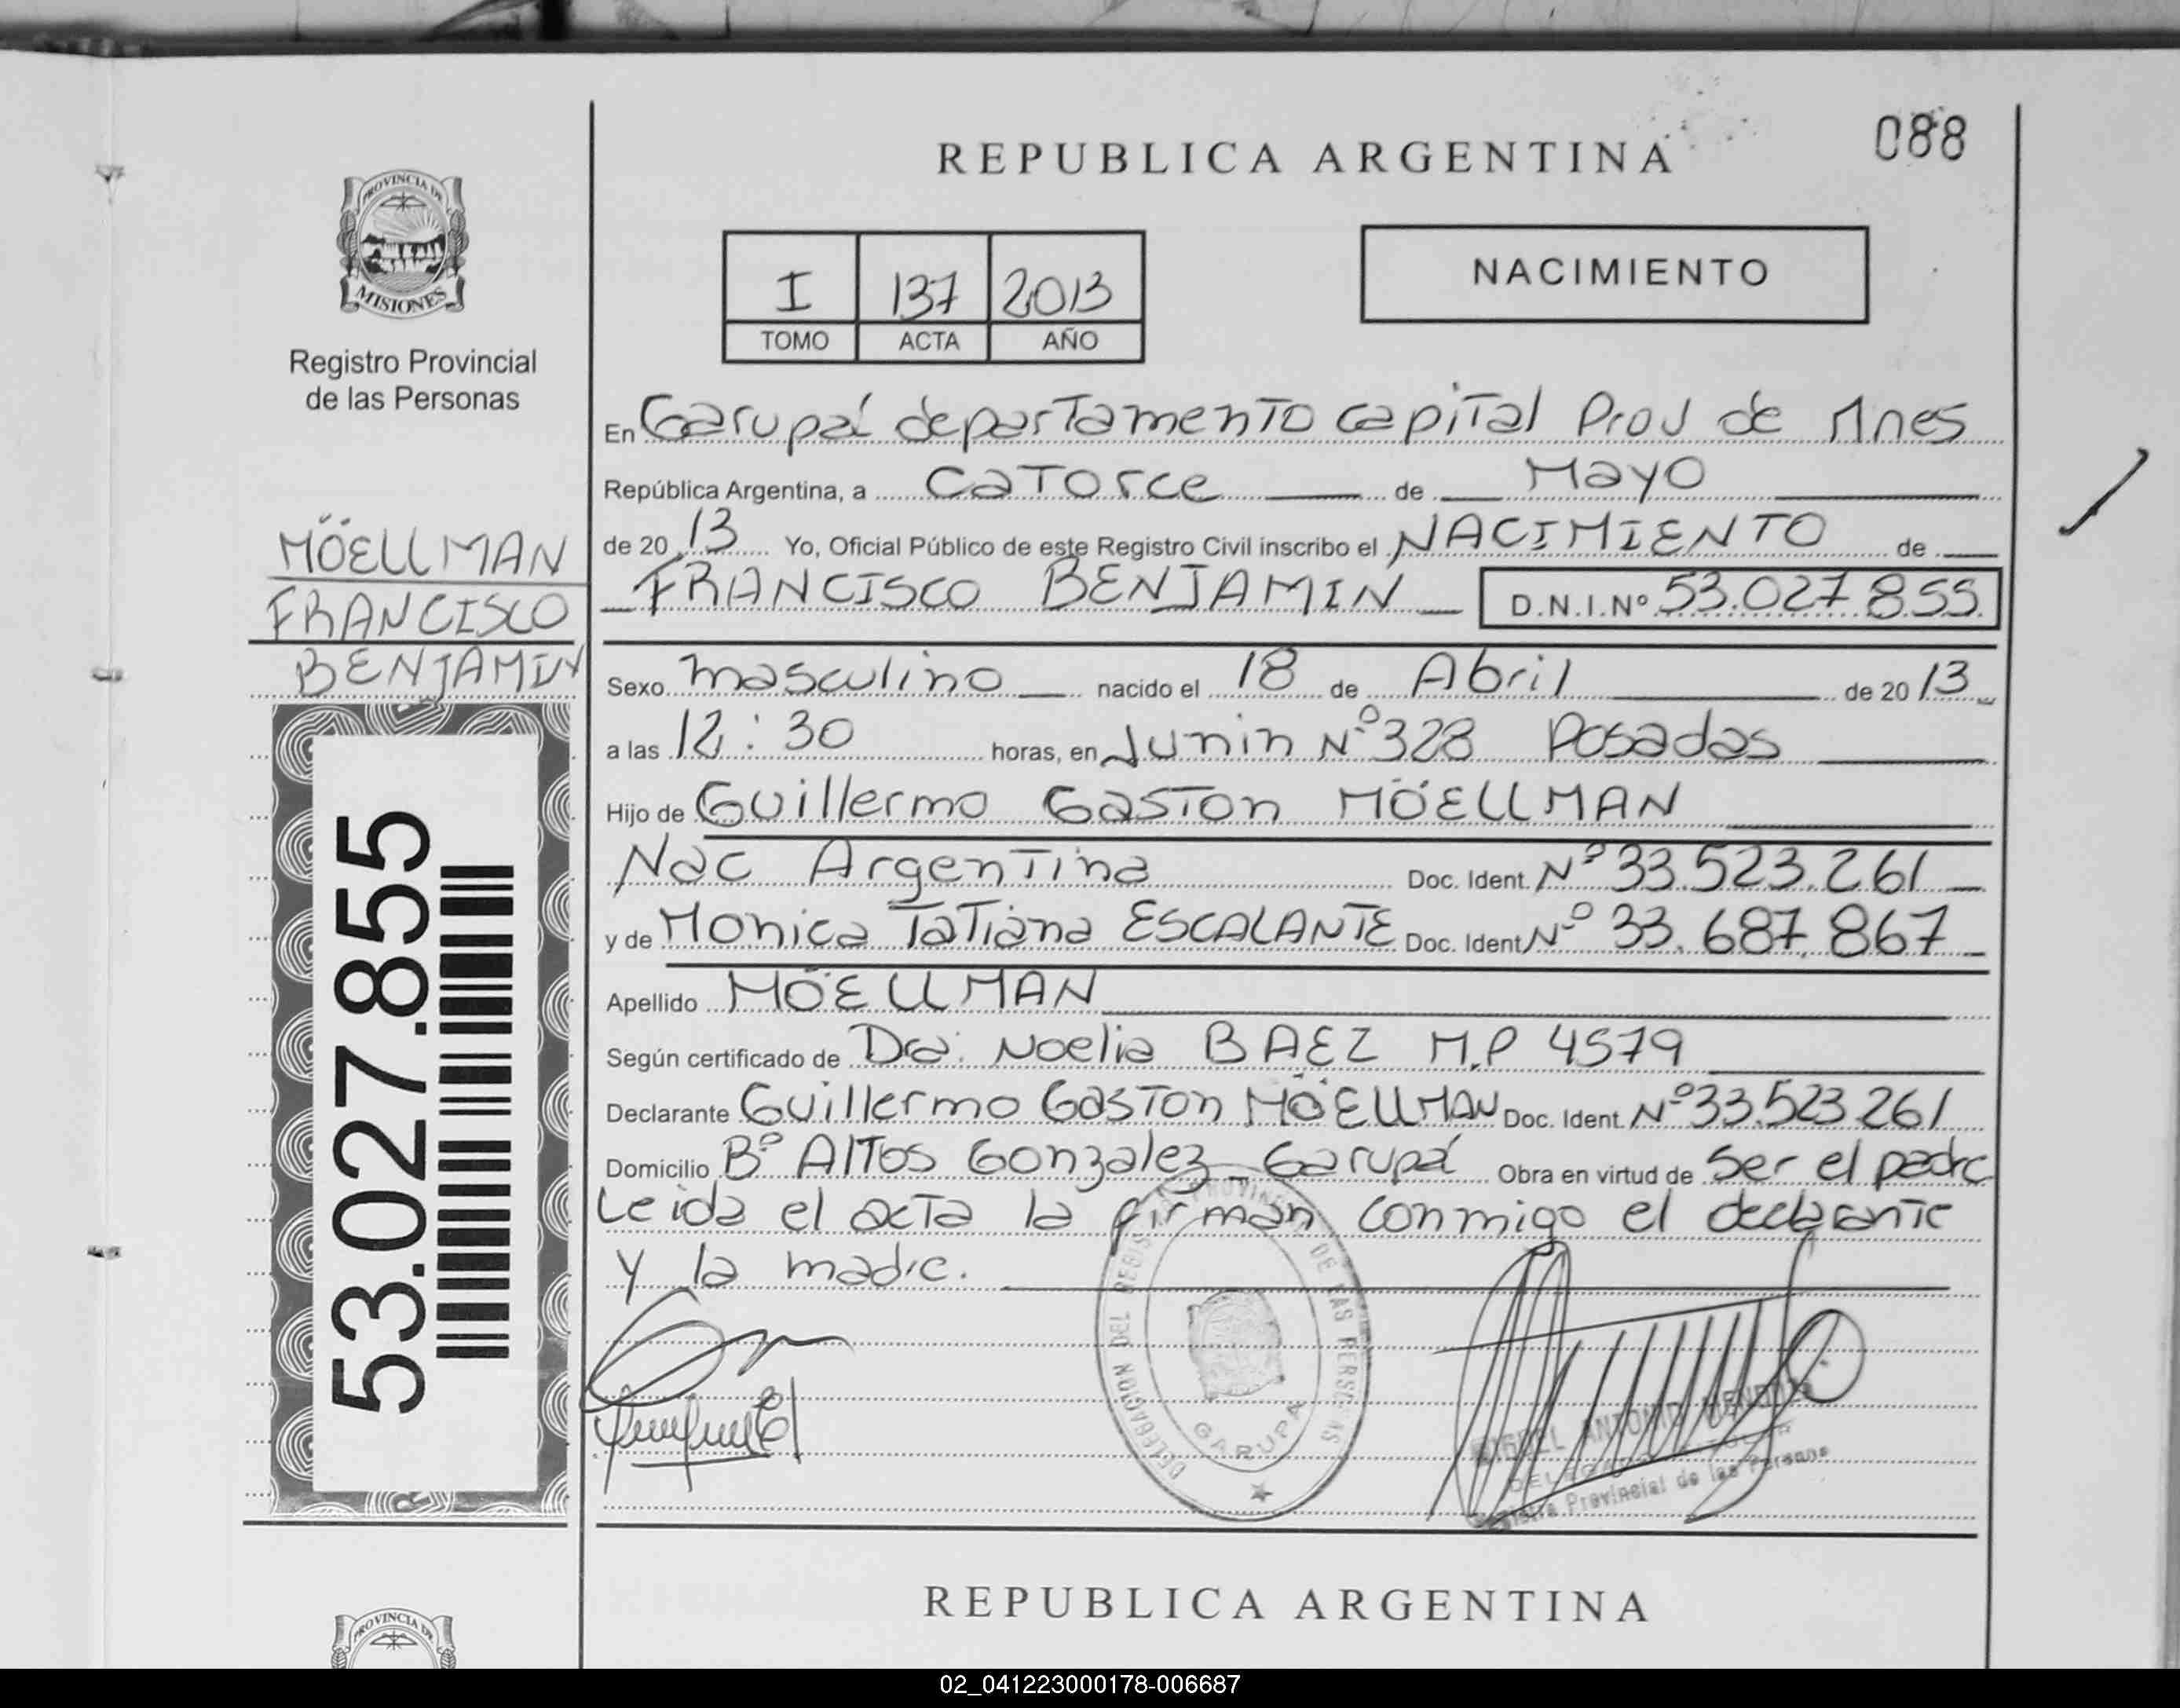 REPUBLICA ARGENTINA
088
PROVINCIA DE
MISIONES
Registro Provincial
de las Personas
I 137 2013
TOMO ACTA AÑO
NACIMIENTO
MÖELLMAN
FRANCISCO
BENJAMIN
53.027.855
En Garupá departamento capital Prov de Mnes
República Argentina, a catorce de Mayo
de 20 13 Yo, Oficial Público de este Registro Civil inscribo el NACIMIENTO de
FRANCISCO BENJAMIN D.N.I.Nº 53.027.855
Sexo masculino nacido el 18 de Abril de 20 13
a las 12:30 horas, en Junin Nº 328 Posadas
Hijo de Guillermo Gaston MÖELLMAN
Nac Argentina Doc. Ident. Nº 33.523.261
y de Monica Tatiana ESCALANTE Doc. Ident Nº 33.687.867
Apellido MÖELLMAN
Según certificado de Dra. Noelia BAEZ M.P 4579
Declarante Guillermo Gaston MÖELLMAN Doc. Ident. Nº 33.523.261
Domicilio Bº Altos Gonzalez Garupá Obra en virtud de Ser el padre
Leida el acta la firman conmigo el declarante
y la madre.
DELEGACION DEL REGIS PROVINC DE LAS PERSONAS
GARUPA
MIGUEL ANTONIO MENDOZA
Provincial de las Personas
REPUBLICA ARGENTINA
PROVINCIA DE
02_041223000178-006687